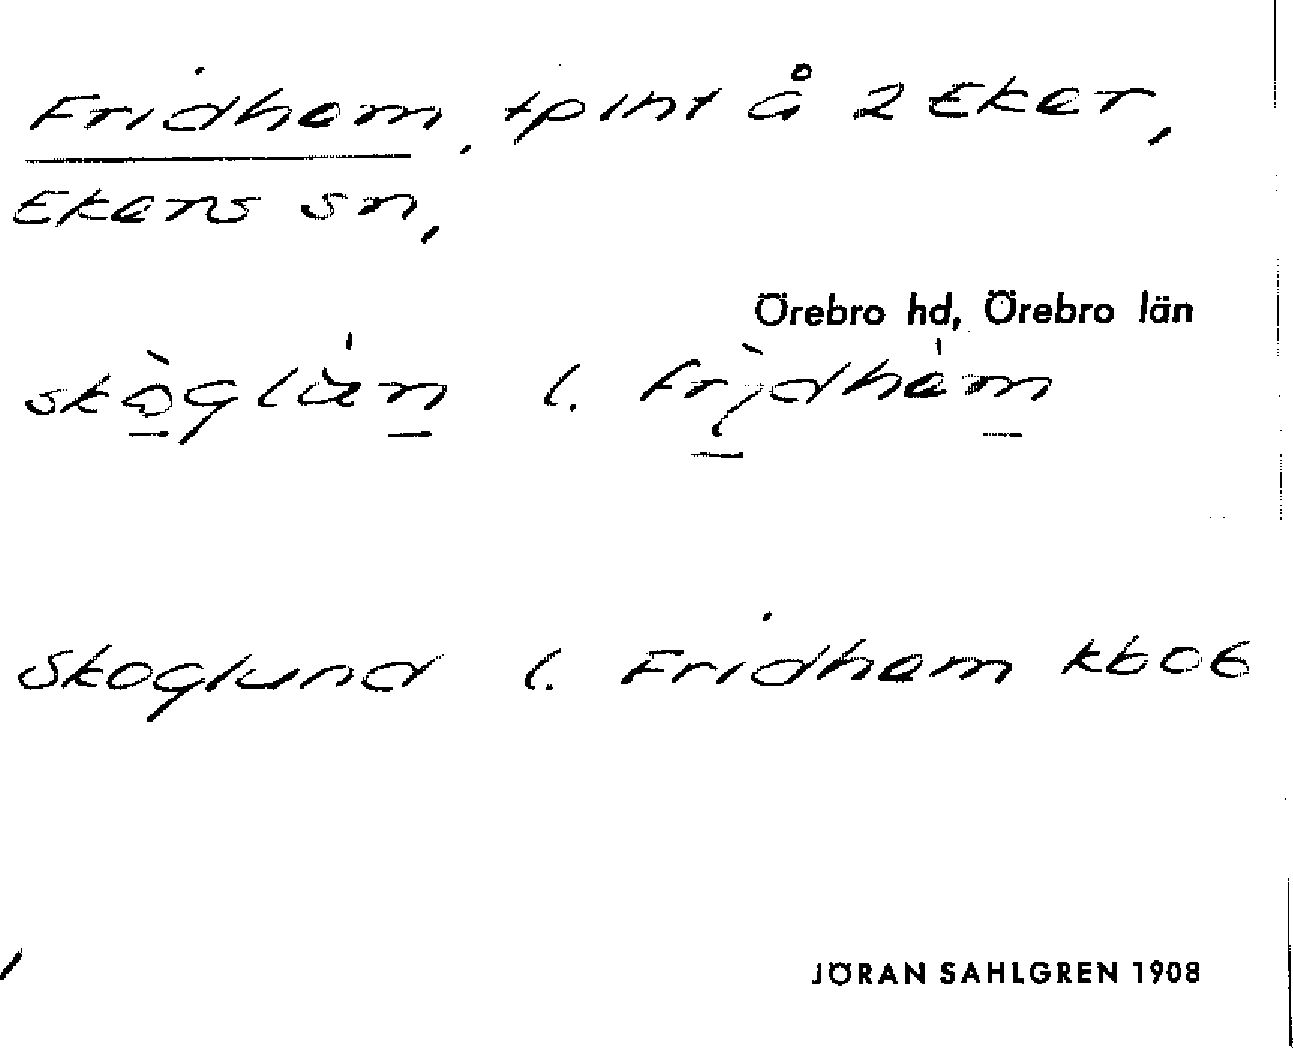 Fridhem, tplht å 2 Eker,
Ekers sn,
Örebro hd, Örebro län
l. fridhèm
Skoglund l. Fridhem kb06
JÖRAN SAHLGREN 1908